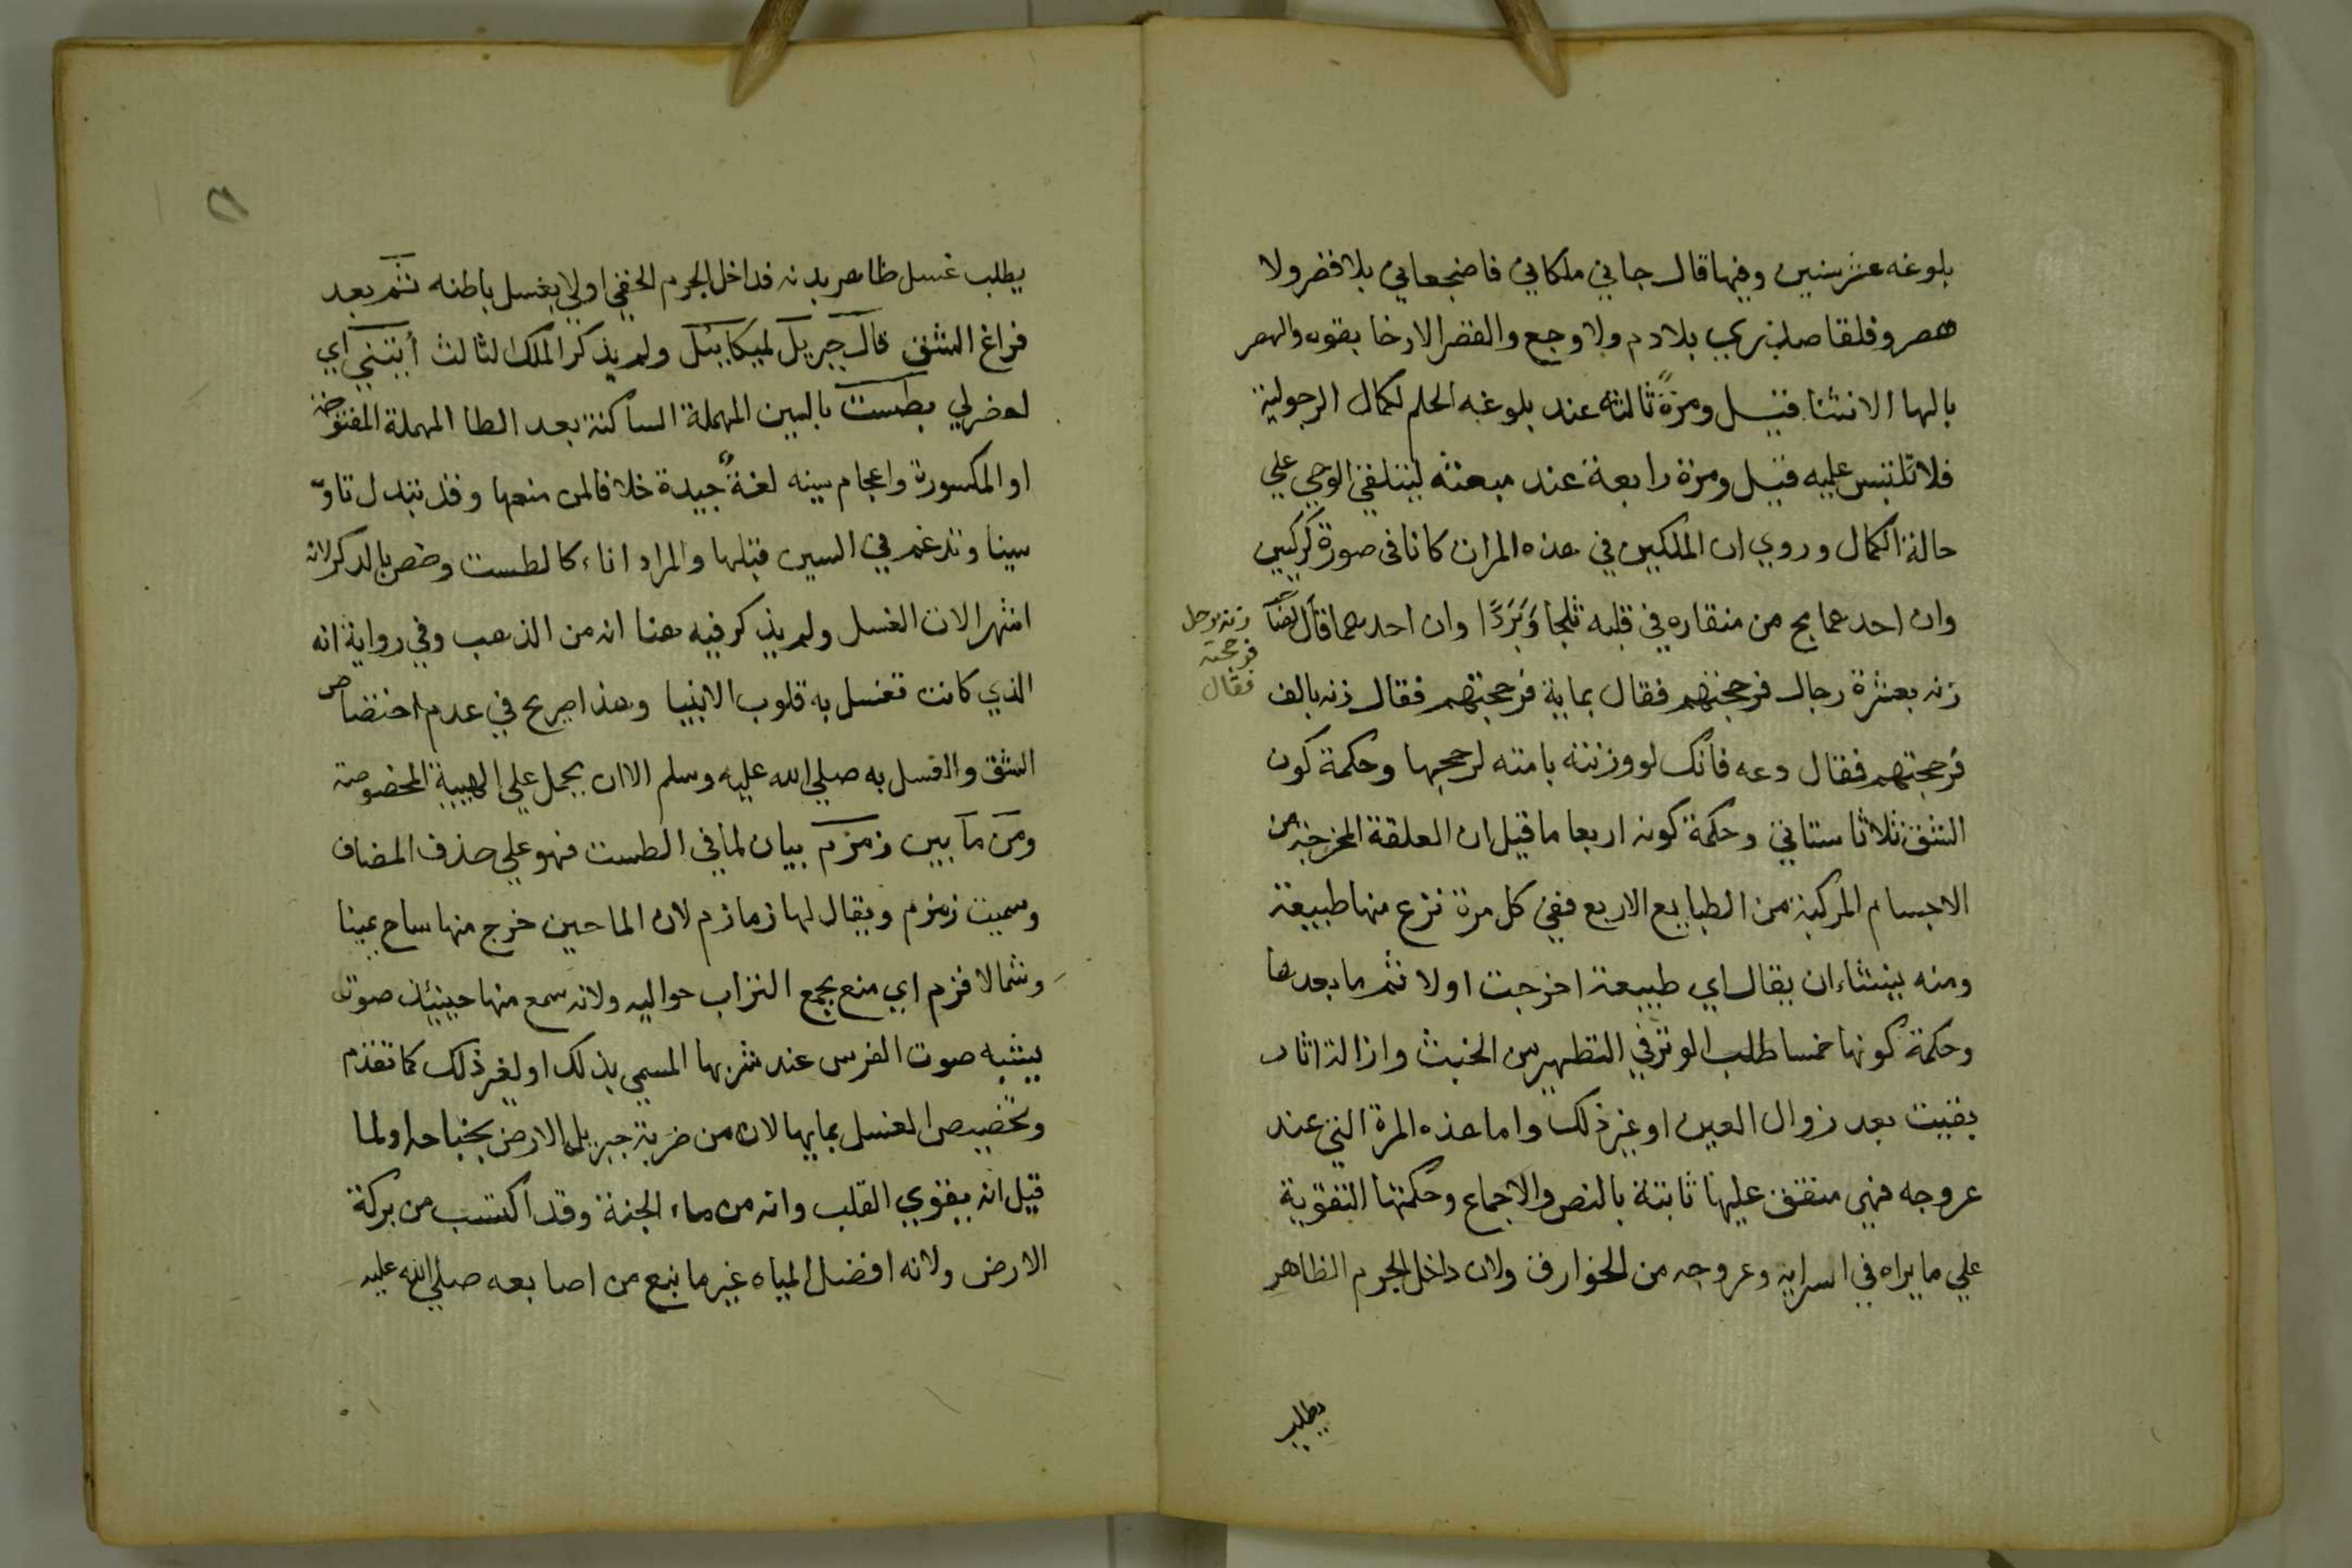 بلوغه عشر سنين وفيها قال جاني ملكاني فاضجعاني بلا قصر ولا
هصر وفلقا صدري بلا دم ولا وجع والقصر الارخا بقوه والهصر
بالها الانثنا قيل ومرةً ثالثة عند بلوغه الحلم لكمال الرجولية
فلا تلتبس عليه قيل ومرة رابعة عند مبعثه ليتلقي الوحي علي
حالة الكمال وروي ان الملكين في هذه المرات كانا في صورة كركيين
وان احدهما مج من منقاره في قلبه ثلجا وَبَرَدًا وان احدهما قال ايضا
زنه برجل
فرجحته
فقال
زنه بعشرة رجال فرجحتهم فقال بماية فرجحتهم فقال زنه بالف
فرجحتهم فقال دعه فانك لو وزنته بامته لرجحها وحكمة كون
الشق ثلاثا ستاتي وحكمة كونه اربعا ما قيل ان العلقة المخرجة من
الاجسام المركبة من الطبايع الاربع ففي كل مرة نزع منها طبيعة
ومنه ينشاء ان يقال اي طبيعة اخرجت اولا ثم ما بعدها
وحكمة كونها خمسا طلب الوتر في التطهير من الخبث وازالة اثار
بقيت بعد زوال العين او غير ذلك واما هذه المرة التي عند
عروجه فهي متفق عليها ثابتة بالنص والاجماع وحكمتها التقوية
علي ما يراه في اسرايه وعروجه من الخوارق ولان داخل الجرم الظاهر
يطلب
يطلب غسل ظاهر بدنه فداخل الجرم الخفي اولي بغسل باطنه ثم بعد
فراغ الشق قال جبريل لميكائيل ولم يذكر الملك الثالث أيتني اي
احضر لي بطست بالسين المهملة الساكنة بعد الطا المهملة المفتوحة
او المكسورة واعجام سينه لغةٌ جيدة خلافا لمن منعها وقد تبدل تاوه
سينا وتدغم في السين قبلها والمراد اناء كالطست وخص بالذكر لانه
اشهر الات الغسل ولم يذكر فيه هنا انه من الذهب وفي رواية انه
الذي كانت تغسل به قلوب الانبيا وهذا صريح في عدم اختصاص
الشق والغسل به صلي الله عليه وسلم الا ان يحمل علي الهيية المخصوصة
ومن ما بين زمزم بيان لما في الطست فهو علي حذف المضاف
وسميت زمزم ويقال لها زمازم لان الما حين خرج منها ساح يمينا
وشمالا فزم اي منع بجمع التراب حواليه ولانه سمع منها حينيئذ صوت
يشبه صوت الفرس عند شربها المسمي بذلك او لغير ذلك كما تقدم
وتخصيص الغسل بمايها لانه من ضربة جبريل الارض بجناحه ولما
قيل انه يقوي القلب وانه من ماء الجنة وقد اكتسب من بركة
الارض ولانه افضل المياه غير ما نبع من اصابعه صلي الله عليه